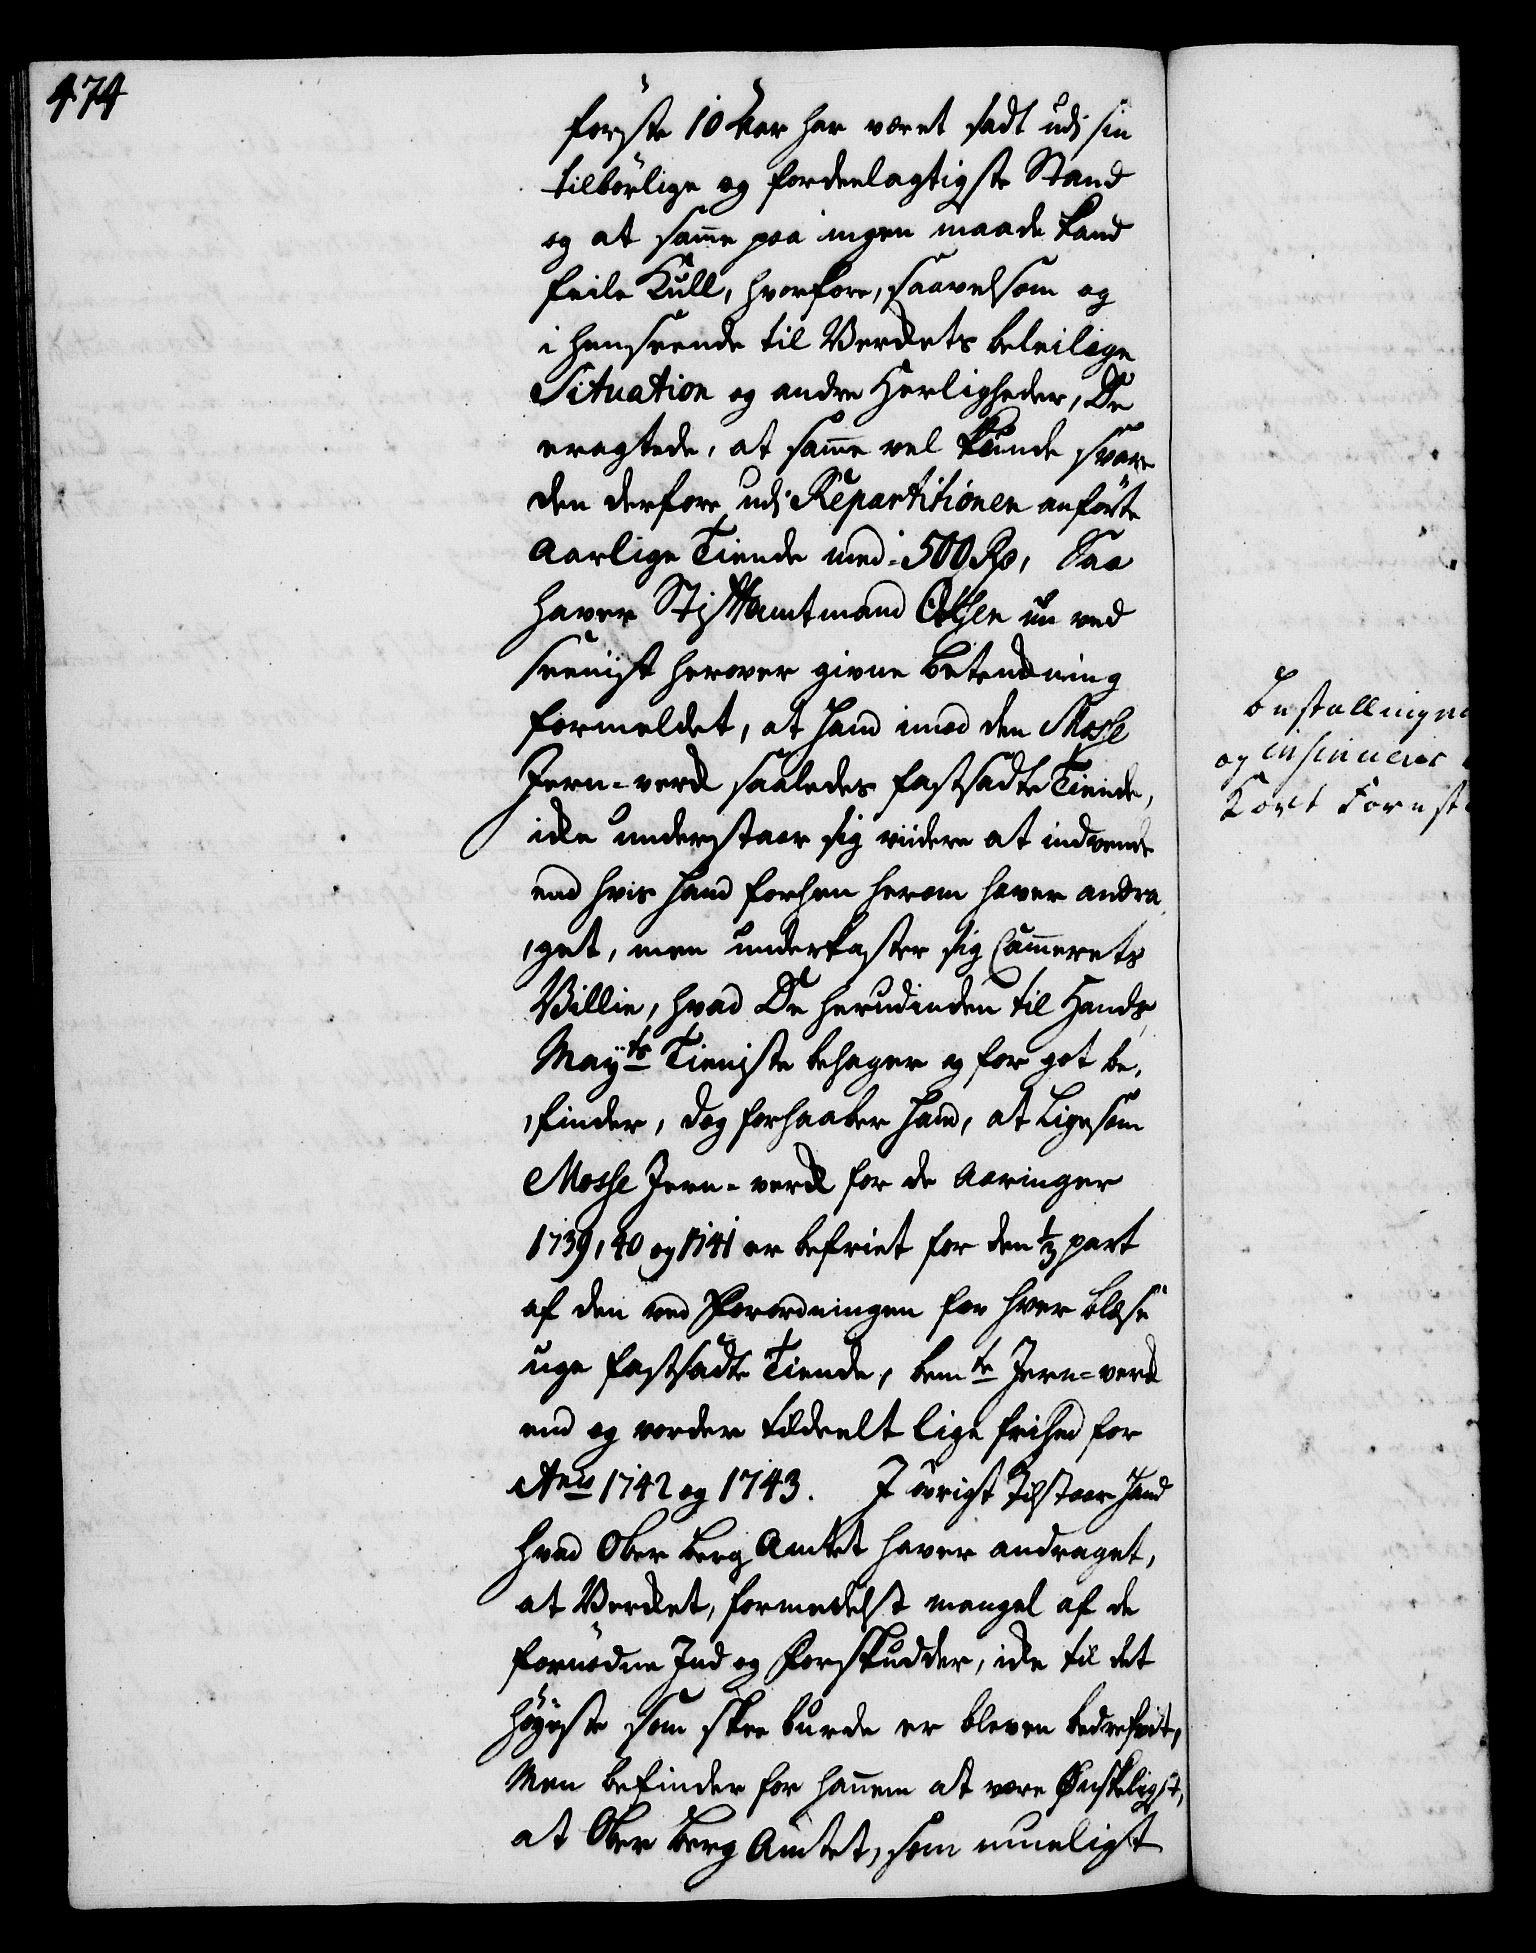 474
förste 10 Aar har været sadt udj sin
tilbörlige og fordeelagtigste Stand
og at sam̄e paa ingen maade kand
feile Kull, hvorfore, saavelsom og
i henseende til Verckets beleilige
Situation og andre Herligheder, De
eragtede, at sam̄e vel kunde svare
den derfore udj Repartitionen anförte
Aarlige Tiende med 500 Rd, Saa
haver Stiftamtmand Otthen nu ved
seeniist herover givne Betenckning
formeldet, at Hand imod den Mosse
Jern-verck saaledes fastsadte Tiende,
icke understaar sig viidere at indvende
end hvis Hand forhen herom haver andra
get, men underkaster sig Cam̄erets
Villie, hvad De herudinden til Hands
Mayts Tieniste behager og for got be,
finder, dog forhaaber Hand, at Ligesom
Mosse Jern-verck for de Aaringer
1739, 40 og 1741 er befriet for den ⅓ part
af den ved Forordningen for hver blæse
uge fastsadte Tiende, bemte Jern-verck
end og vorder tildeelt lige frihed for
Ao 1742 og 1743. I övrigt Tilstaar Hand
hvad Ober Berg Amtet haver andraget,
at Vercket, formedelst mangel af de
fornödne Ind og Forskudder, icke til det
höyeste som skee burde er bleven bedrefvet,
Men befinder for han̄em at være Ønskeligst,
at Ober Berg Amtet, som mueligt
Bestallingen
og insinueres
Kort Forest